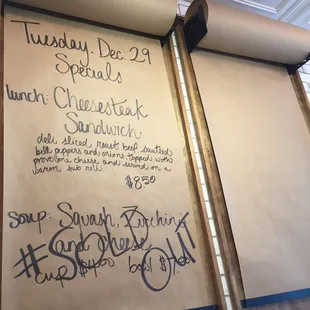 Tuesday. Dec. 29
Specials
lunch: Cheesesteak
Sandwich
deli sliced roast beef sautéed
bell peppers and onions topped with
provolone cheese and served on a
warm sub roll
$8.50
Soup: Squash, Zucchini
and cheese
cup $4.00 bowl $7.00
#SOLD OUT